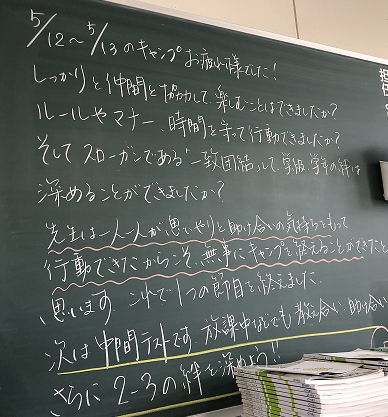 5/12～5/13のキャンプお疲れ様でした!
しっかりと仲間と協力して、楽しむことはできましたか?
ルールやマナー、時間を守って行動できましたか?
そしてスローガンである"一致団結"して、学級、学年の絆は
深めることができましたか?
先生は一人一人が思いやりと助け合いの気持ちをもって
行動できたからこそ、無事にキャンプを終えることができたと
思います。これで1つの節目を終えました。
次は中間テストです。放課中などでも教え合い、助け合い
さらに2-3の絆を深めよう!!
担
任